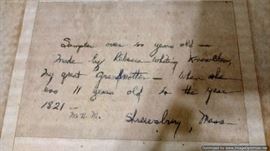 Sampler over 100 years old —
Made by Rebecca Whiting Knowlton,
My great Grandmother — When she
was 11 years old in the year
1821 —
M.H.M.
Shrewsbury, Mass —